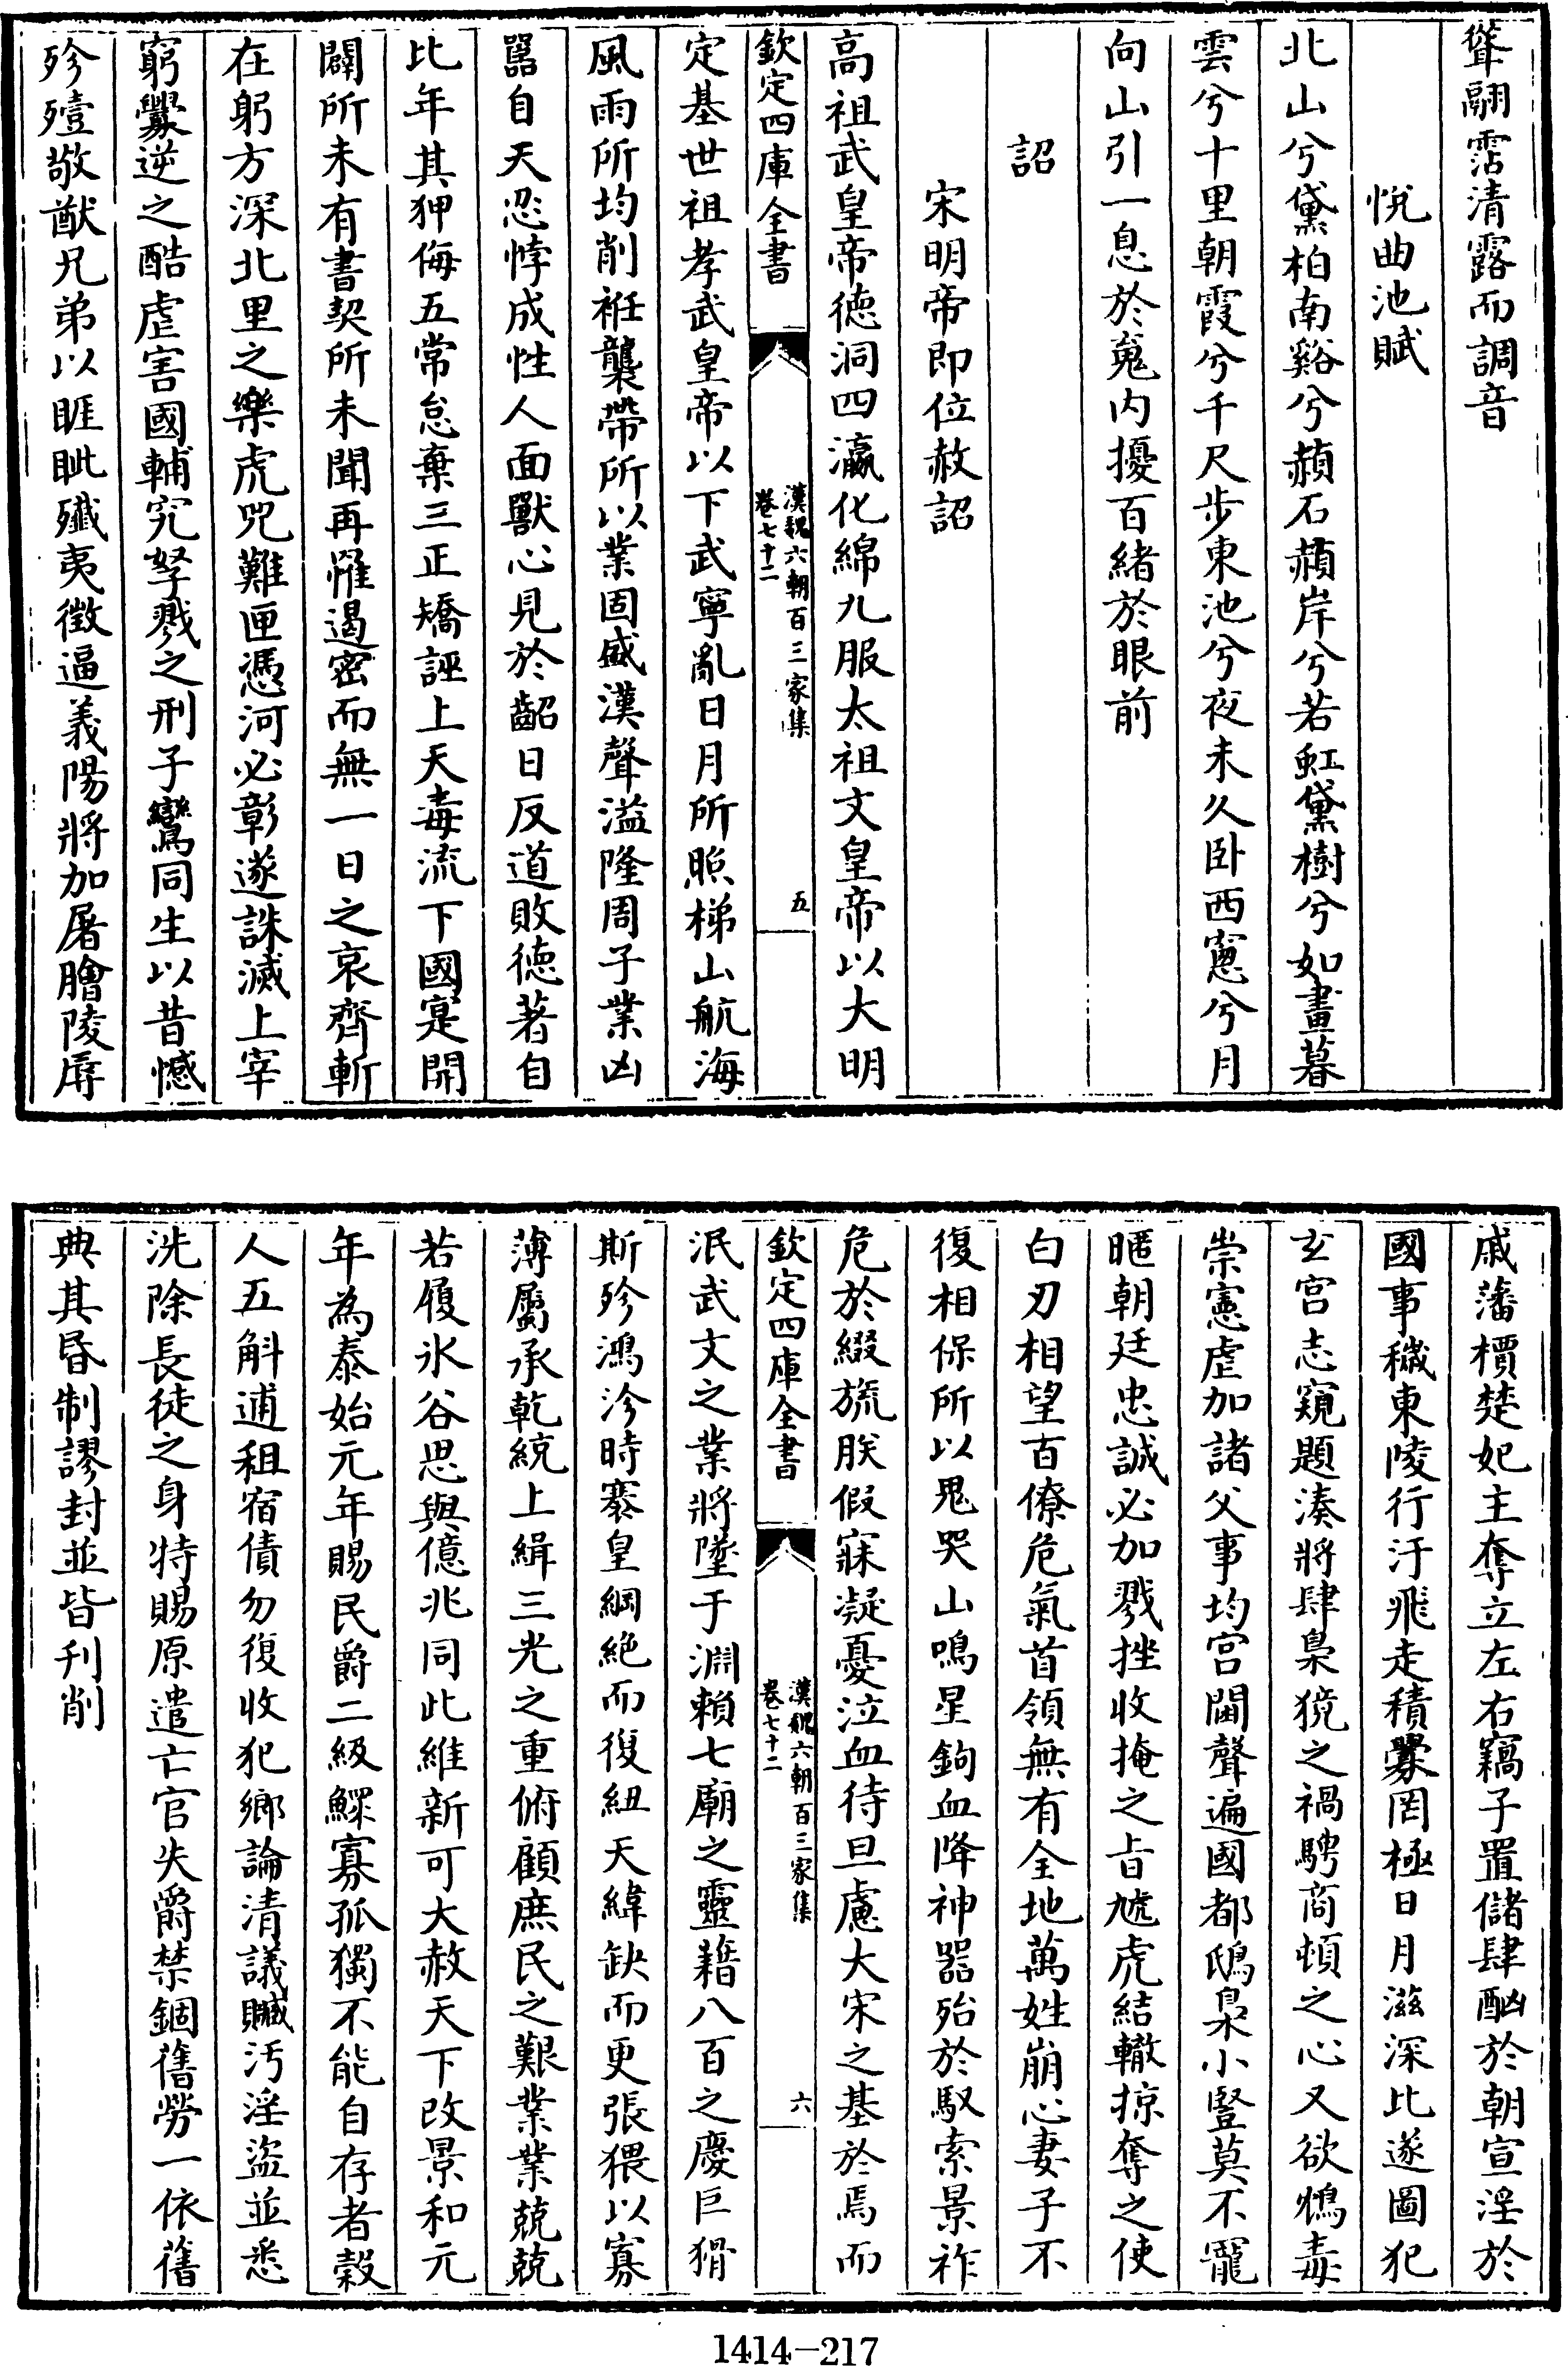 聳翮霑清露而調音
悅曲池賦
北山兮黛柏南谿兮赬石赬岸兮若虹黛樹兮如畫暮
雲兮十里朝霞兮千尺步東池兮夜未久卧西窻兮月
向山引一息於䰟内擾百緒於眼前
詔
宋明帝即位赦詔
高祖武皇帝徳洞四瀛化綿九服太祖文皇帝以大明
欽定四庫全書
漢魏六朝百三家集
卷七十二
五
定基世祖孝武皇帝以下武寧亂日月所照梯山航海
風雨所均削衽襲帶所以業固盛漢聲溢隆周子業凶
嚚自天忍悖成性人面獸心見於齠日反道敗徳著自
比年其狎侮五常怠棄三正矯誣上天毒流下國寔開
闢所未有書契所未聞再罹遏密而無一日之哀齊斬
在躬方深北里之樂虎兕難匣憑河必彰遂誅滅上宰
窮釁逆之酷虐害國輔究孥戮之刑子鸞同生以昔憾
殄殪敬猷兄弟以睚眦殱夷徵逼義陽將加屠膾陵辱
戚藩檟楚妃主奪立左右竊子置儲肆酗於朝宣淫於
國事穢東陵行汙飛走積釁罔極日月滋深比遂圖犯
玄宮志窺題湊將肆梟獍之禍騁商頓之心又欲鴆毒
崇憲虐加諸父事均宮閫聲遍國都鴟梟小豎莫不寵
暱朝廷忠誠必加戮挫收掩之旨虓虎結轍掠奪之使
白刃相望百僚危氣首領無有全地萬姓崩心妻子不
復相保所以鬼哭山鳴星鉤血降神器殆於馭索景祚
危於綴旒朕假寐凝憂泣血待旦慮大宋之基於焉而
欽定四庫全書
漢魏六朝百三家集
卷七十二
六
泯武文之業將墜于淵賴七廟之靈藉八百之慶巨猾
斯殄鴻沴時褰皇綱絶而復紐天緯缺而更張猥以寡
薄屬承乾統上緝三光之重俯顧庶民之艱業業兢兢
若履氷谷思與億兆同此維新可大赦天下改景和元
年為泰始元年賜民爵二級鰥寡孤獨不能自存者穀
人五斛逋租宿債勿復收犯鄉論清議贓汚淫盜並悉
洗除長徒之身特賜原遣亡官失爵禁錮舊勞一依舊
典其昏制謬封並皆刋削
1414—217